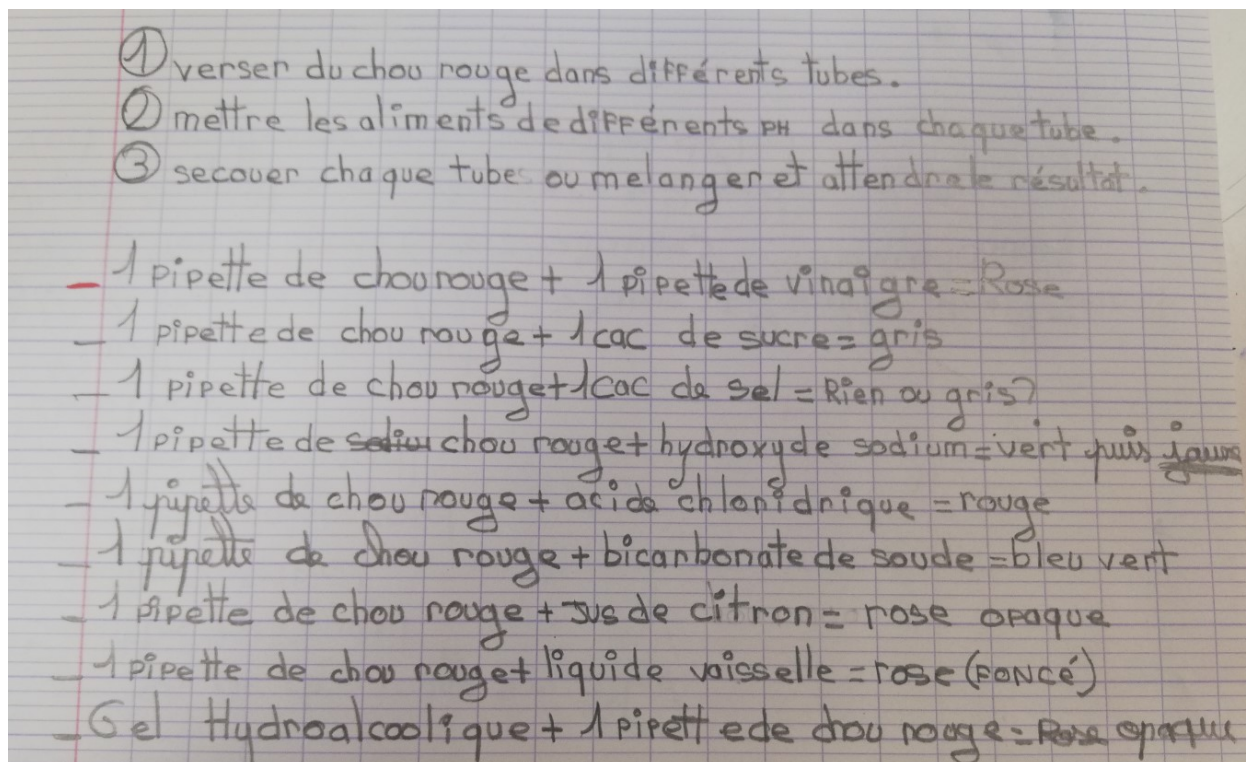 ① verser du chou rouge dans différents tubes.
② mettre les aliments de différents PH dans chaque tube.
③ secouer chaque tube ou melanger et attendre le résultat.
- 1 pipette de chou rouge + 1 pipette de vinaigre = Rose
- 1 pipette de chou rouge + 1 cac de sucre = gris
- 1 pipette de chou rouge + 1 cac de sel = Rien ou gris?
- 1 pipette de chou rouge + hydroxyde sodium = vert puis jaune
- 1 pipette de chou rouge + acide chloridrique = rouge
- 1 pipette de chou rouge + bicarbonate de soude = bleu vert
- 1 pipette de chou rouge + Jus de citron = rose opaque
- 1 pipette de chou rouge + liquide vaisselle = rose (FONCÉ)
- Gel Hydroalcoolique + 1 pipette de chou rouge = Rose opaque